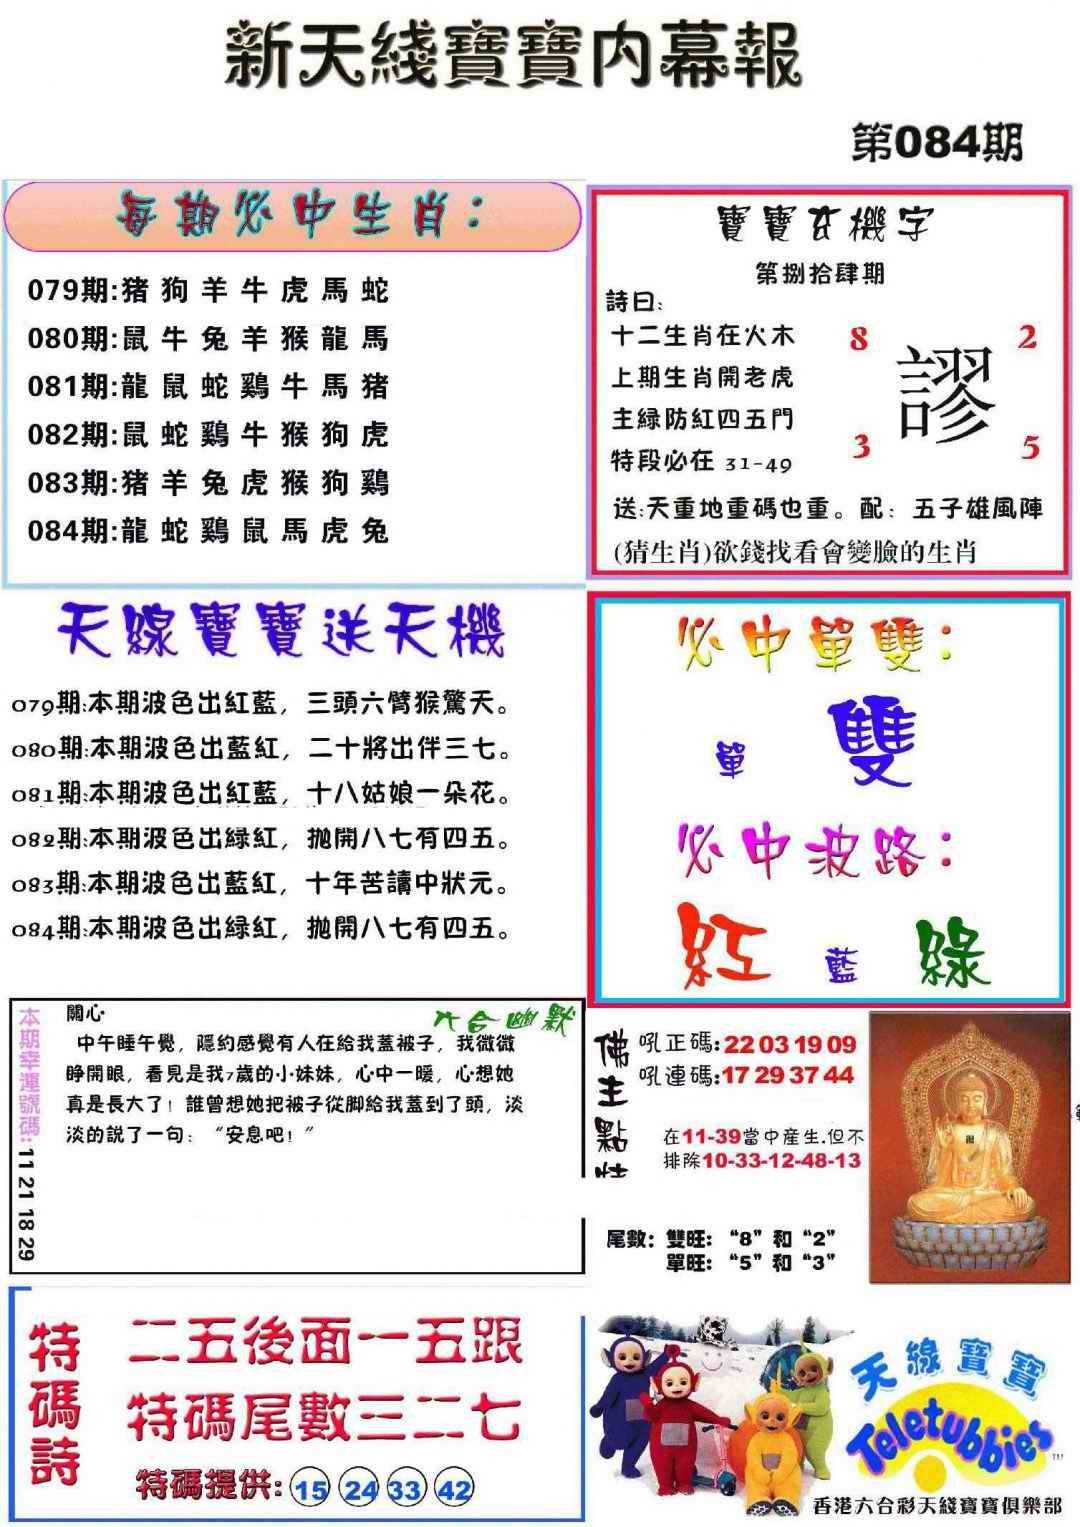 新天綫寶寶内幕報
第084期
每期必中生肖：
079期:猪狗羊牛虎馬蛇
080期:鼠牛兔羊猴龍馬
081期:龍鼠蛇鷄牛馬猪
082期:鼠蛇鷄牛猴狗虎
083期:猪羊兔虎猴狗鷄
084期:龍蛇鷄鼠馬虎兔
寶寶玄機字
第捌拾肆期
詩曰:
十二生肖在火木
上期生肖開老虎
主緑防紅四五門
特段必在 31-49
8 2
謬
3 5
送:天重地重碼也重。配：五子雄風陣
(猜生肖)欲錢找看會變臉的生肖
天線寶寶送天機
079期:本期波色出紅藍，三頭六臂猴驚天。
080期:本期波色出藍紅，二十將出伴三七。
081期:本期波色出紅藍，十八姑娘一朵花。
082期:本期波色出緑紅，抛開八七有四五。
083期:本期波色出藍紅，十年苦讀中狀元。
084期:本期波色出緑紅，抛開八七有四五。
必中單雙：
單 雙
必中波路：
紅 藍 綠
本期幸運號碼:11 21 18 29
六合幽默
關心
中午睡午覺，隱約感覺有人在給我蓋被子，我微微
睁開眼，看見是我7歲的小妹妹，心中一暖，心想她
真是長大了！誰曾想她把被子從脚給我蓋到了頭，淡
淡的說了一句：“安息吧！”
佛主點特
吼正碼:22 03 19 09
吼連碼:17 29 37 44
在11-39當中産生.但不
排除10-33-12-48-13
尾數：雙旺：“8”和“2”
單旺：“5”和“3”
特碼詩
二五後面一五跟
特碼尾數三二七
特碼提供: 15 24 33 42
天線寶寶
Teletubbies
TM
香港六合彩天綫寶寶俱樂部